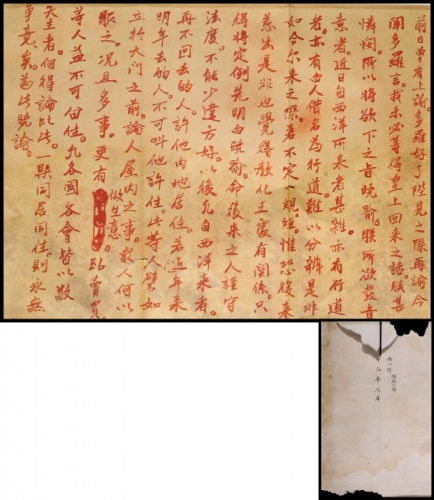 前日曾有上諭多羅好了陛見之際再諭今
聞多羅言我未必等得皇上回來之話朕甚
憐憫所以將欲下之旨曉諭朕所欲發旨
意者近日自西洋所來者甚雜亦有行道
者亦有白人借名為行道難以分辨是非
如今爾來之際若不定一規矩惟恐後來
惹出是非也覺得教化王處有關係只
得將定例先明白曉諭命後來之人謹守
法度不能少違方好以後凡自西洋來者
再不回去的人許他內地居住若近年來
明年去的人不可叫他許住此等人譬如
立於大門之前論人屋內之事教人何以
服之況且多事更有
做生意
跕賣買
等人益不可留住凡各國各會皆以敬
天主者何得論彼此一槩同居同住則永無
爭競矣為此曉諭